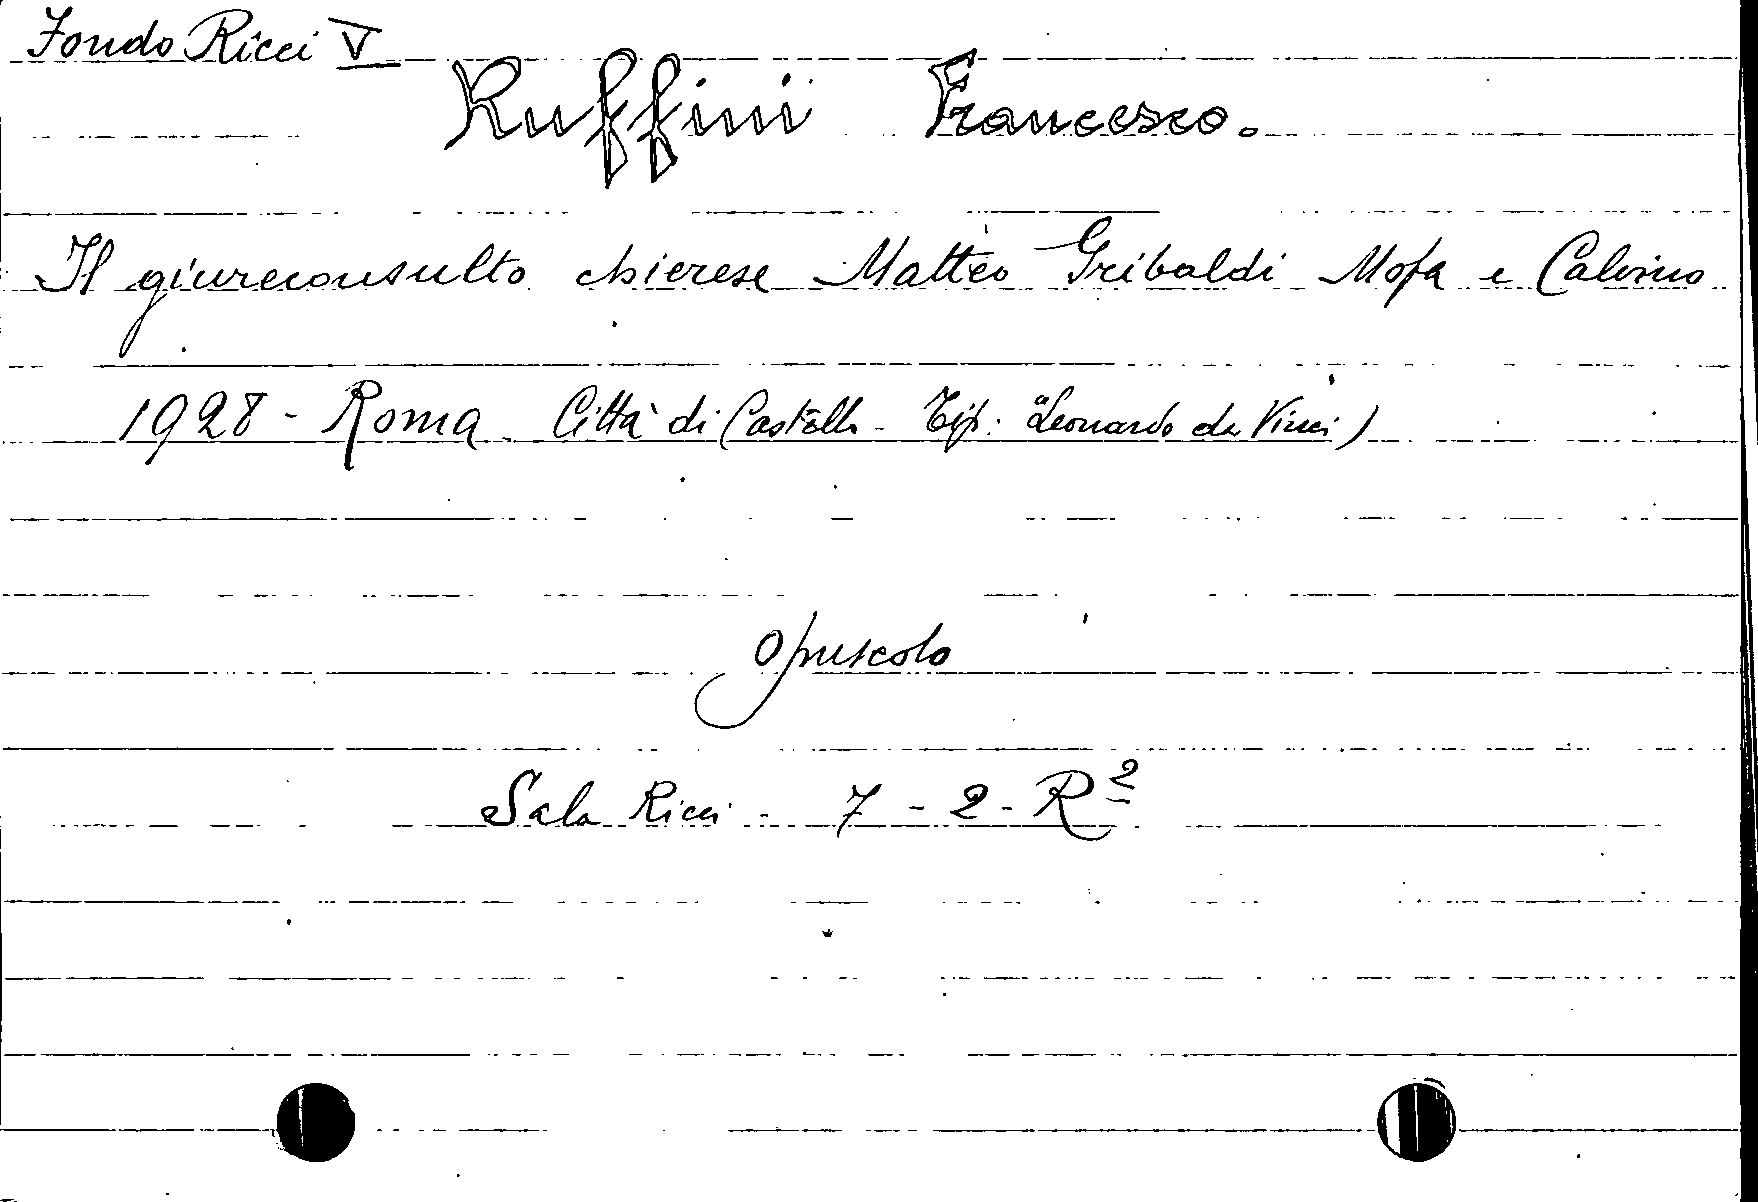 Fondo Ricci V
Ruffini Francesco.
Il giureconsulto chierese Matteo Gribaldi Mofa e Calvino
1928 - Roma. Città di Castello - Tip: "Leonardo da Vinci)
Opuscolo
Sala Ricci - 7 - 2 - R²